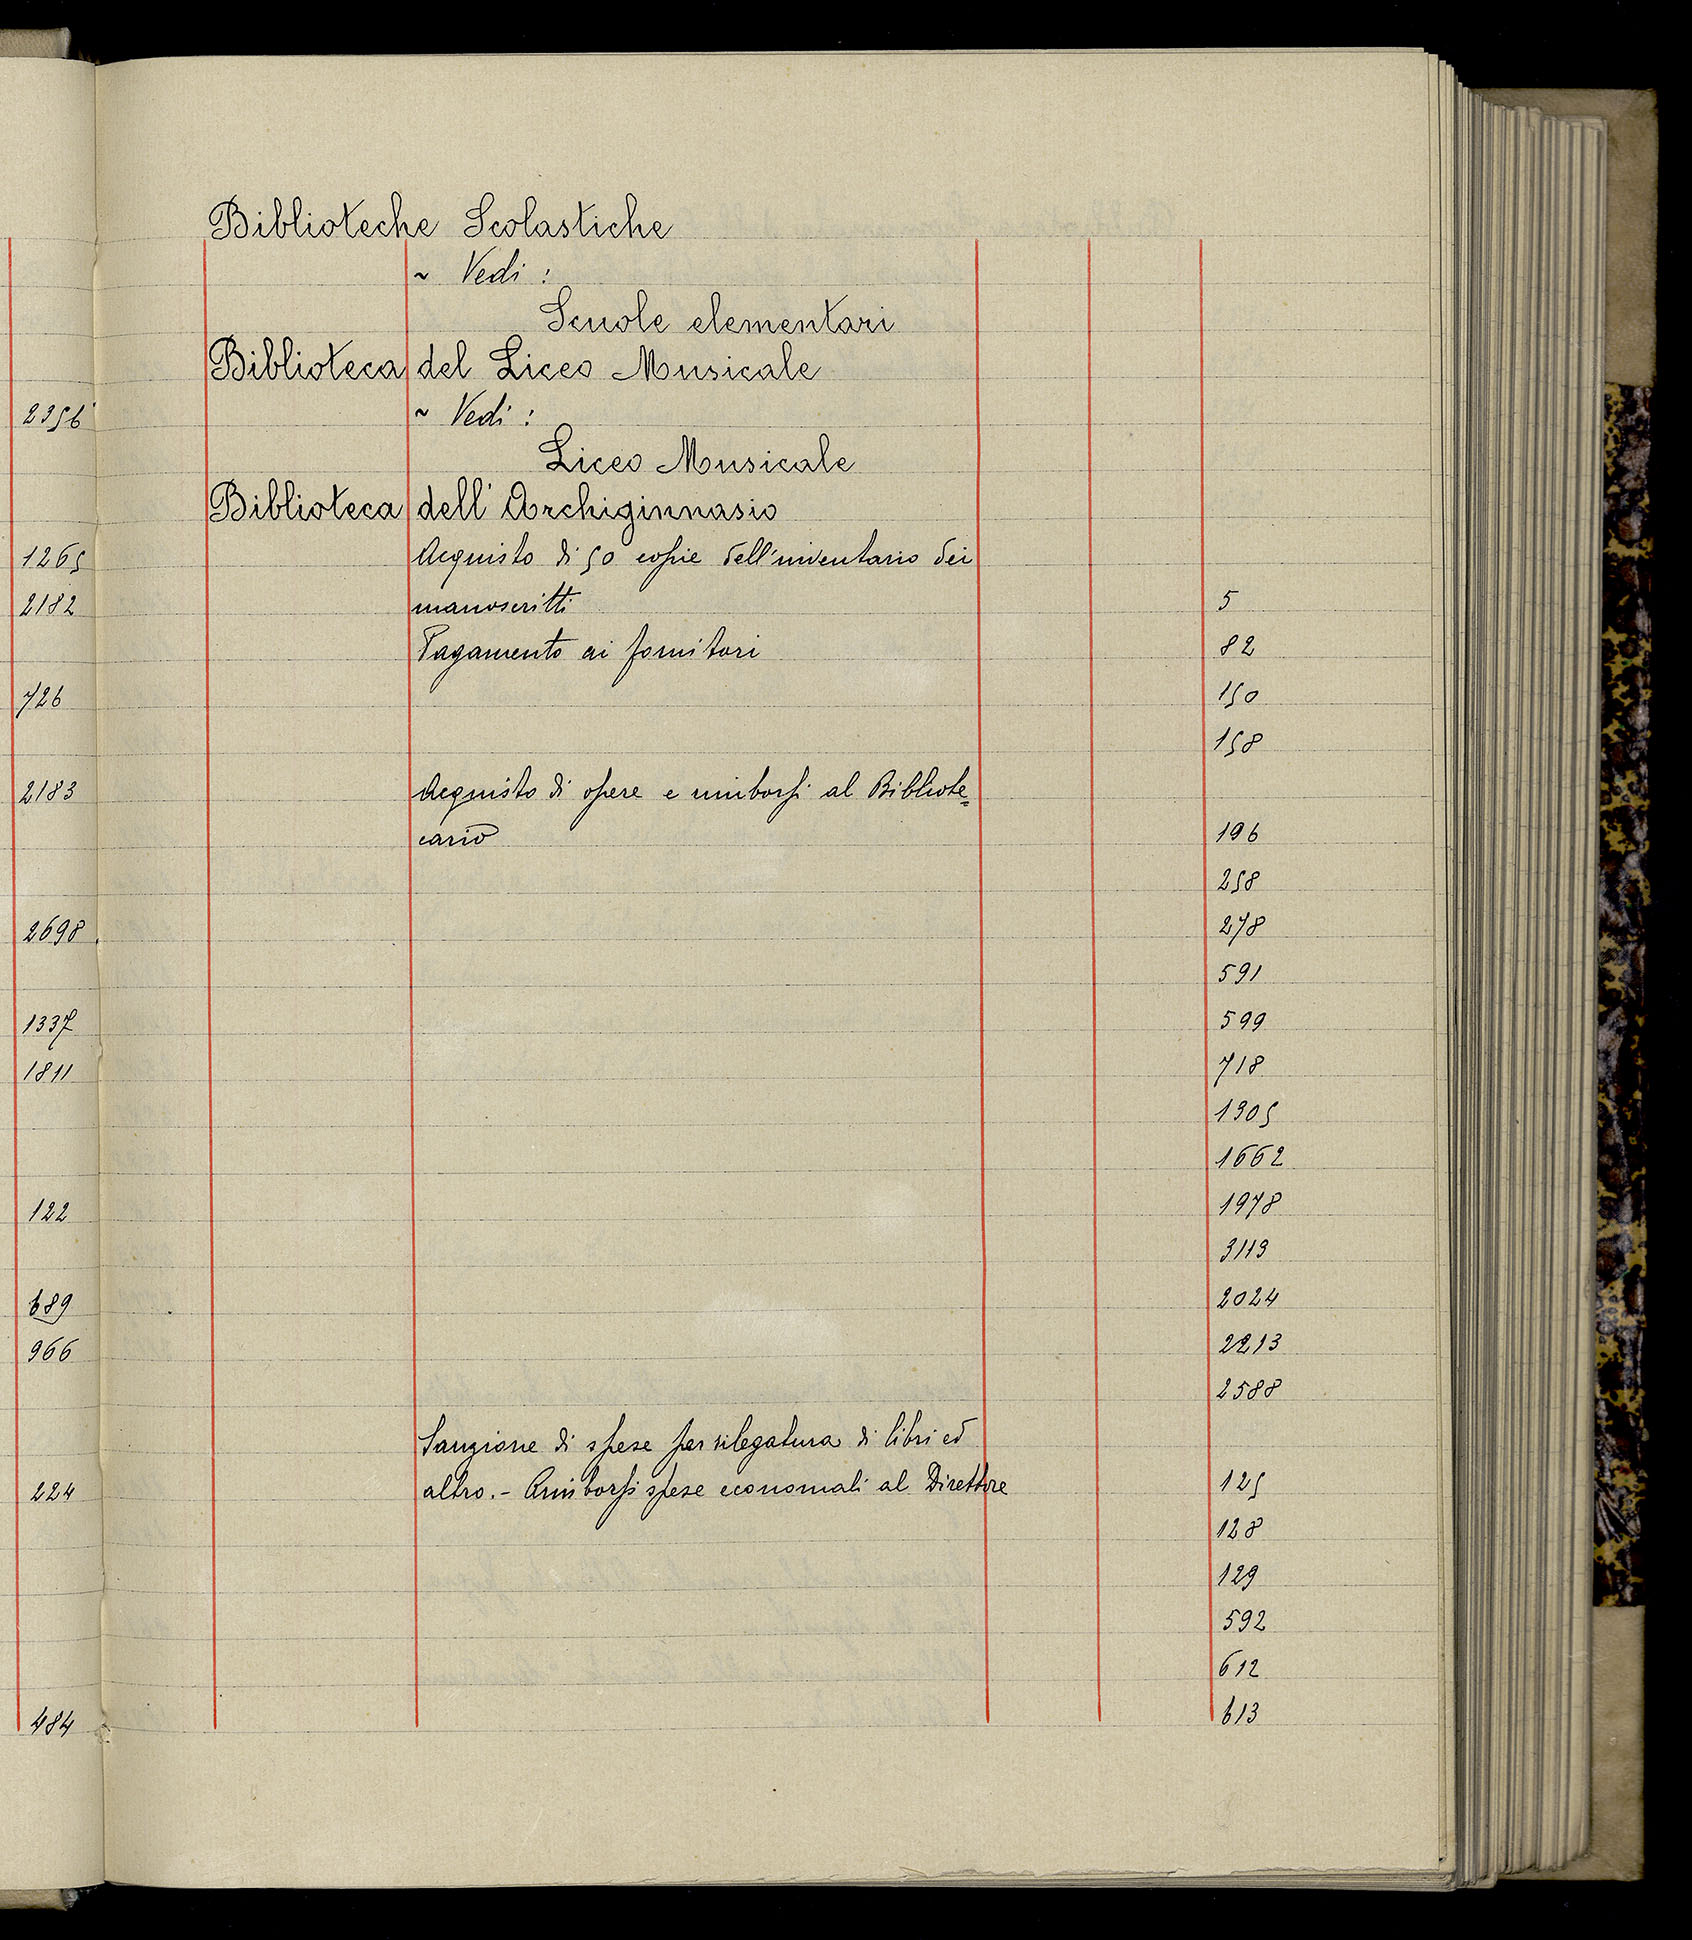 Biblioteche Scolastiche
~ Vedi :
Scuole elementari
Biblioteca del Liceo Musicale
2356
~ Vedi :
Liceo Musicale
Biblioteca dell' Archiginnasio
1265
Acquisto di 50 copie dell'inventario dei
2182
manoscritti 5
Pagamento ai fornitori 82
726
150
158
2183
Acquisto di opere e rimborsi al Bibliote=
cario 196
258
2698
278
591
1337
599
1811
718
1305
1662
122
1978
3113
689
2024
966
2213
2588
Sanzione di spese per rilegatura di libri ed
224
altro. - Rimborsi spese economali al Direttore 125
128
129
592
612
484
613